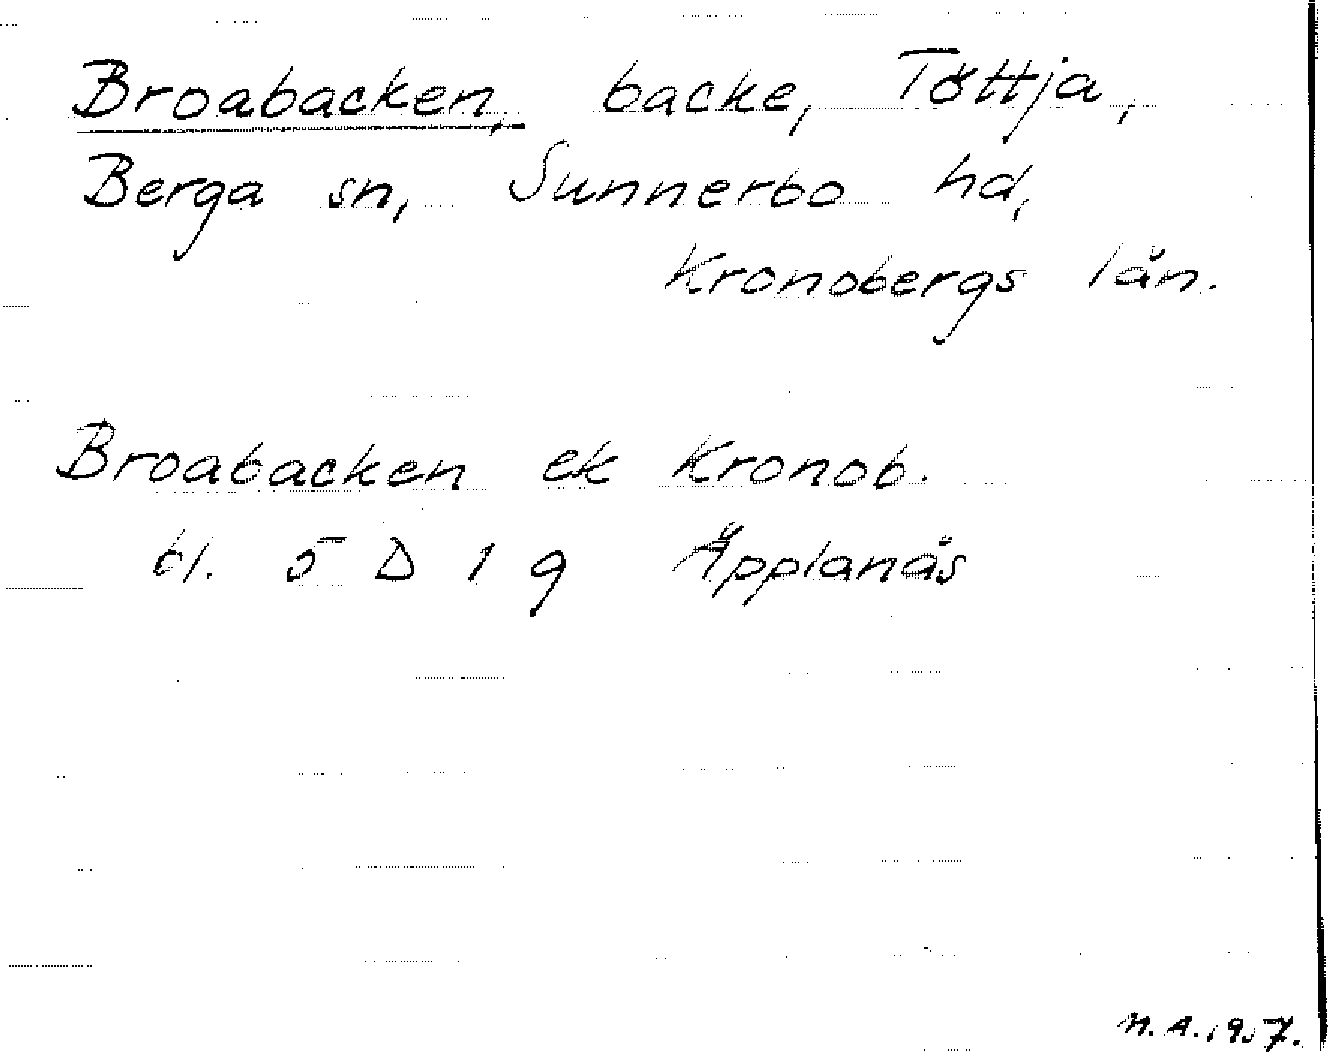 Broabacken, backe, Töttja,
Berga sn, Sunnerbo hd,
Kronobergs län.
Broabacken ek Kronob.
bl. 5 D 1 g Äpplanäs